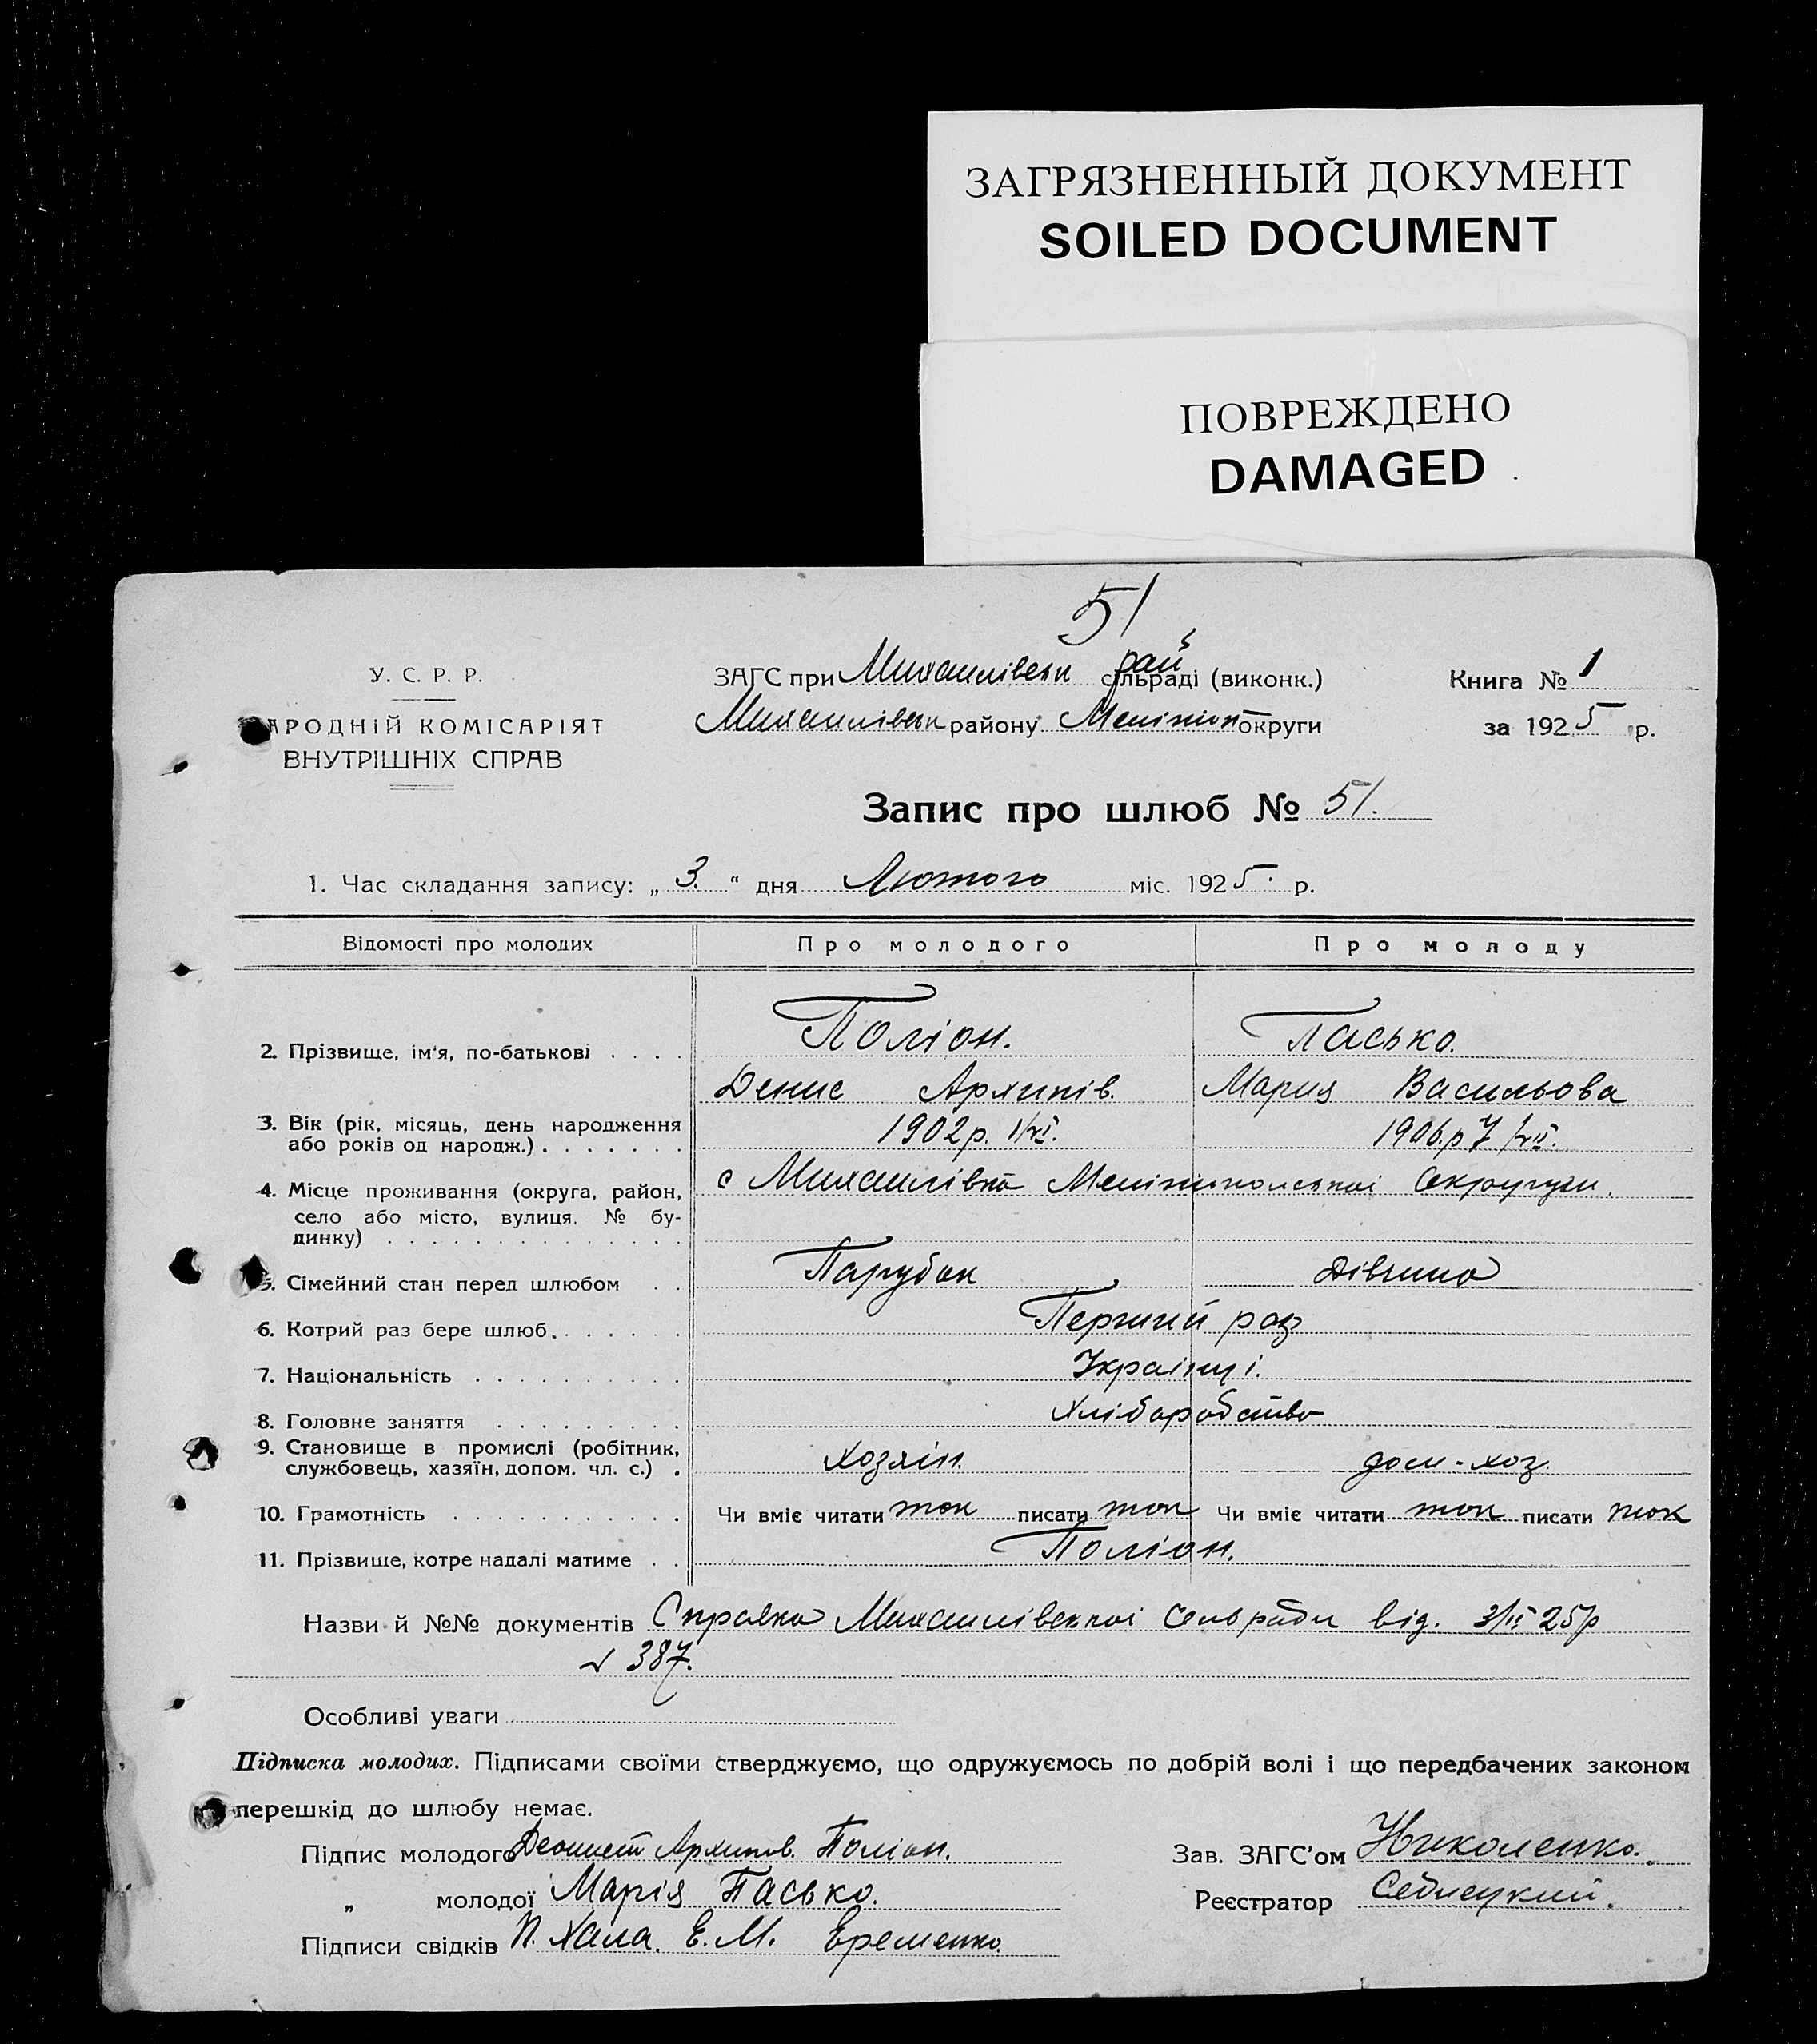 ЗАГРЯЗНЕННЫЙ ДОКУМЕНТ
SOILED DOCUMENT
ПОВРЕЖДЕНО
DAMAGED
51
У. С. Р. Р.
АРОДНІЙ КОМІСАРІЯТ
ВНУТРІШНІХ СПРАВ
ЗАГС при Михайлівськ рай сільраді (виконк.)
Михайлівськ району Меліттоп округи
Книга № 1
за 1925 р.
Запис про шлюб № 51.
1. Час складання запису: „ 3. “ дня Лютого міс. 1925. р.
Відомості про молодих Про молодого Про молоду
2. Прізвище, ім'я, по-батькові . . . . Поліон. Пасько.
Денис Архипів. Мария Васильова
3. Вік (рік, місяць, день народження або років од народж.) . . . . . . . 1902 р. 1906.р 7
4. Місце проживання (округа, район, село або місто, вулиця, № будинку) . . . с Михайлівка Мелітипольської Округи.
5. Сімейний стан перед шлюбом . . Парубок Дівчина
6. Котрий раз бере шлюб . . . . . . Перший раз
7. Національність . . . . . . . . . . Українці.
8. Головне заняття . . . . . . . . . Хліборобство
9. Становище в промислі (робітник, службовець, хазяїн, допом. чл. с.) . хозяін. дом-хоз
10. Грамотність . . . . . . . . . . . Чи вміє читати так писати так Чи вміє читати так писати так
11. Прізвище, котре надалі матиме . . Поліон.
Назви й №№ документів Справка Михайлівської Сельради від. 3/II 25р
№ 387.
Особливі уваги
Підписка молодих. Підписами своїми стверджуємо, що одружуємось по добрій волі і що передбачених законом
перешкід до шлюбу немає.
Підпис молодого Архипов. Поліон. Зав. ЗАГС'ом Николенко.
„ молодої Марія Пасько. Реєстратор
Підписи свідків П. Хала. Е. М. Еременко.